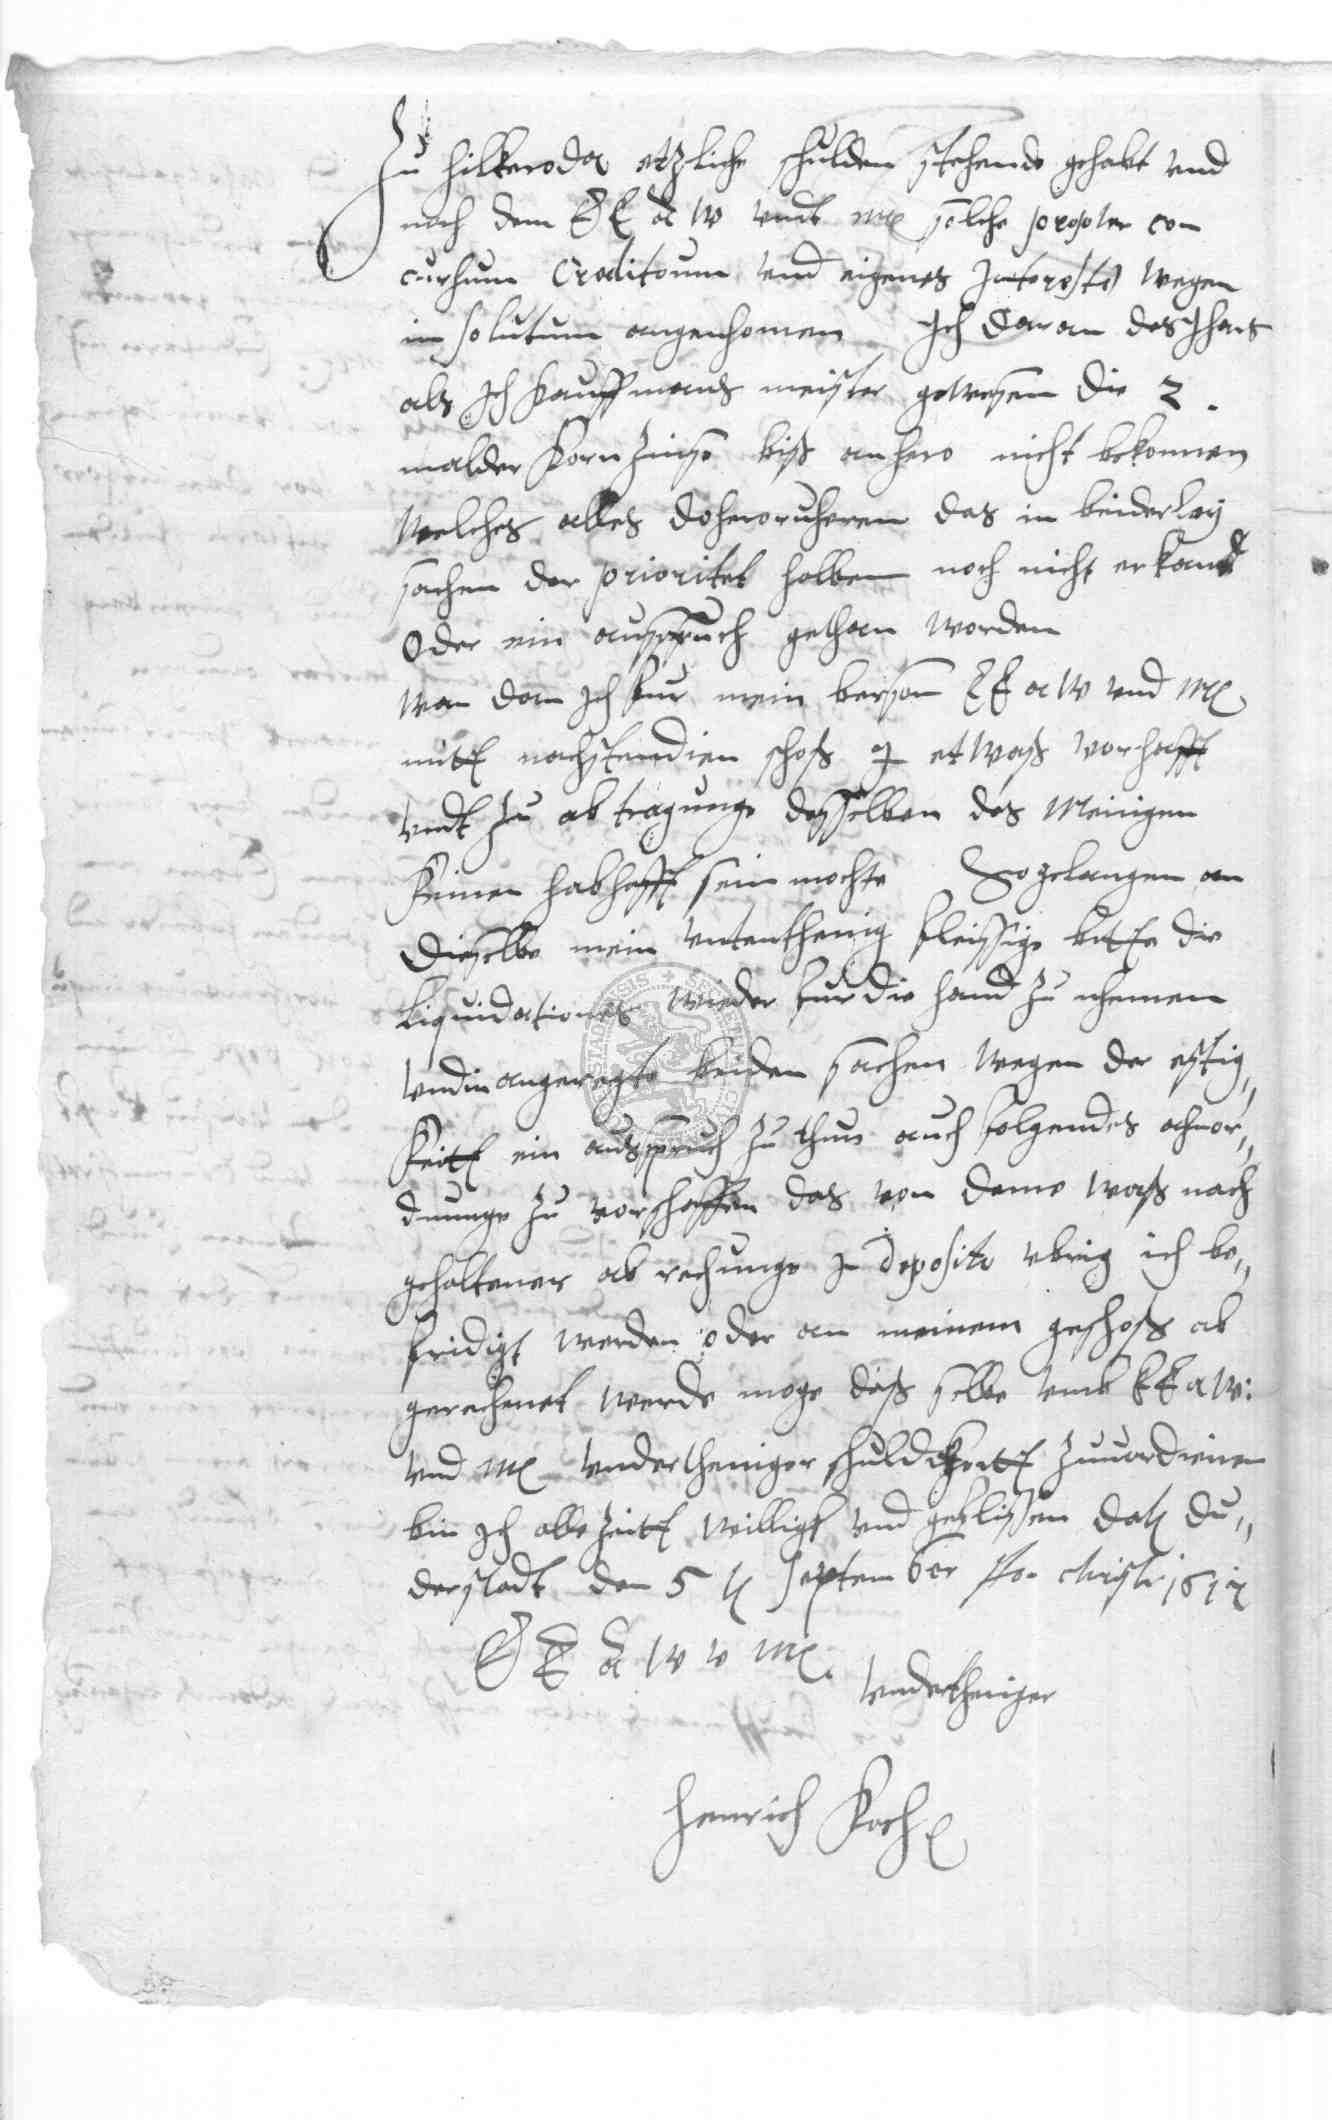 Zu Hilkeroda etzliche schulden stehende gehabt vnd
nach dem E E a W vndt solche propter con
cursum Creditorum vnd eigenes Interesse wegen
in solutum angenhomen Ich daran des Jhars
als Ich Kauffmans meister gewesen die 2.
malder Korn Zinse biß anhero nicht bekommen
welches alles dohero ruheren das in beiderley
sachen der prioritet halben noch nicht erkandt
Oder ein ausspruch gethan worden
wan dan Ich fur mein berson E E a W vnd
mitt nachstendien schoß etwaß vorhafft
vndt zu abtragunge desselben des Meinigen
Keinen habhafft sein mochte So gelangen an
Dieselbe mein vntterthenig fleissige bitte die
Liquidationes wieder fur die hand zu nhemen
vnd in angeregte beiden sachen wegen der
Keitt ein ausspruch zu thun auch folgendes ahnor„
dnunge zu vorschaffen das von deme waß nach
gehaltener abrechunge In deposito vbrig ich be„
fridigt werden oder an meinem geschoß ab
gerechnet werde moge daß selbe vmb E E a W:
vnd vndertheniger schuldkeitt zuuordienen
bin Ich alle Zeitt willigk vnd geflissen Dat Du„
derstadt den 5 t September Ao christi 1612
E E a W v
Vndertheniger
Henrich Koch